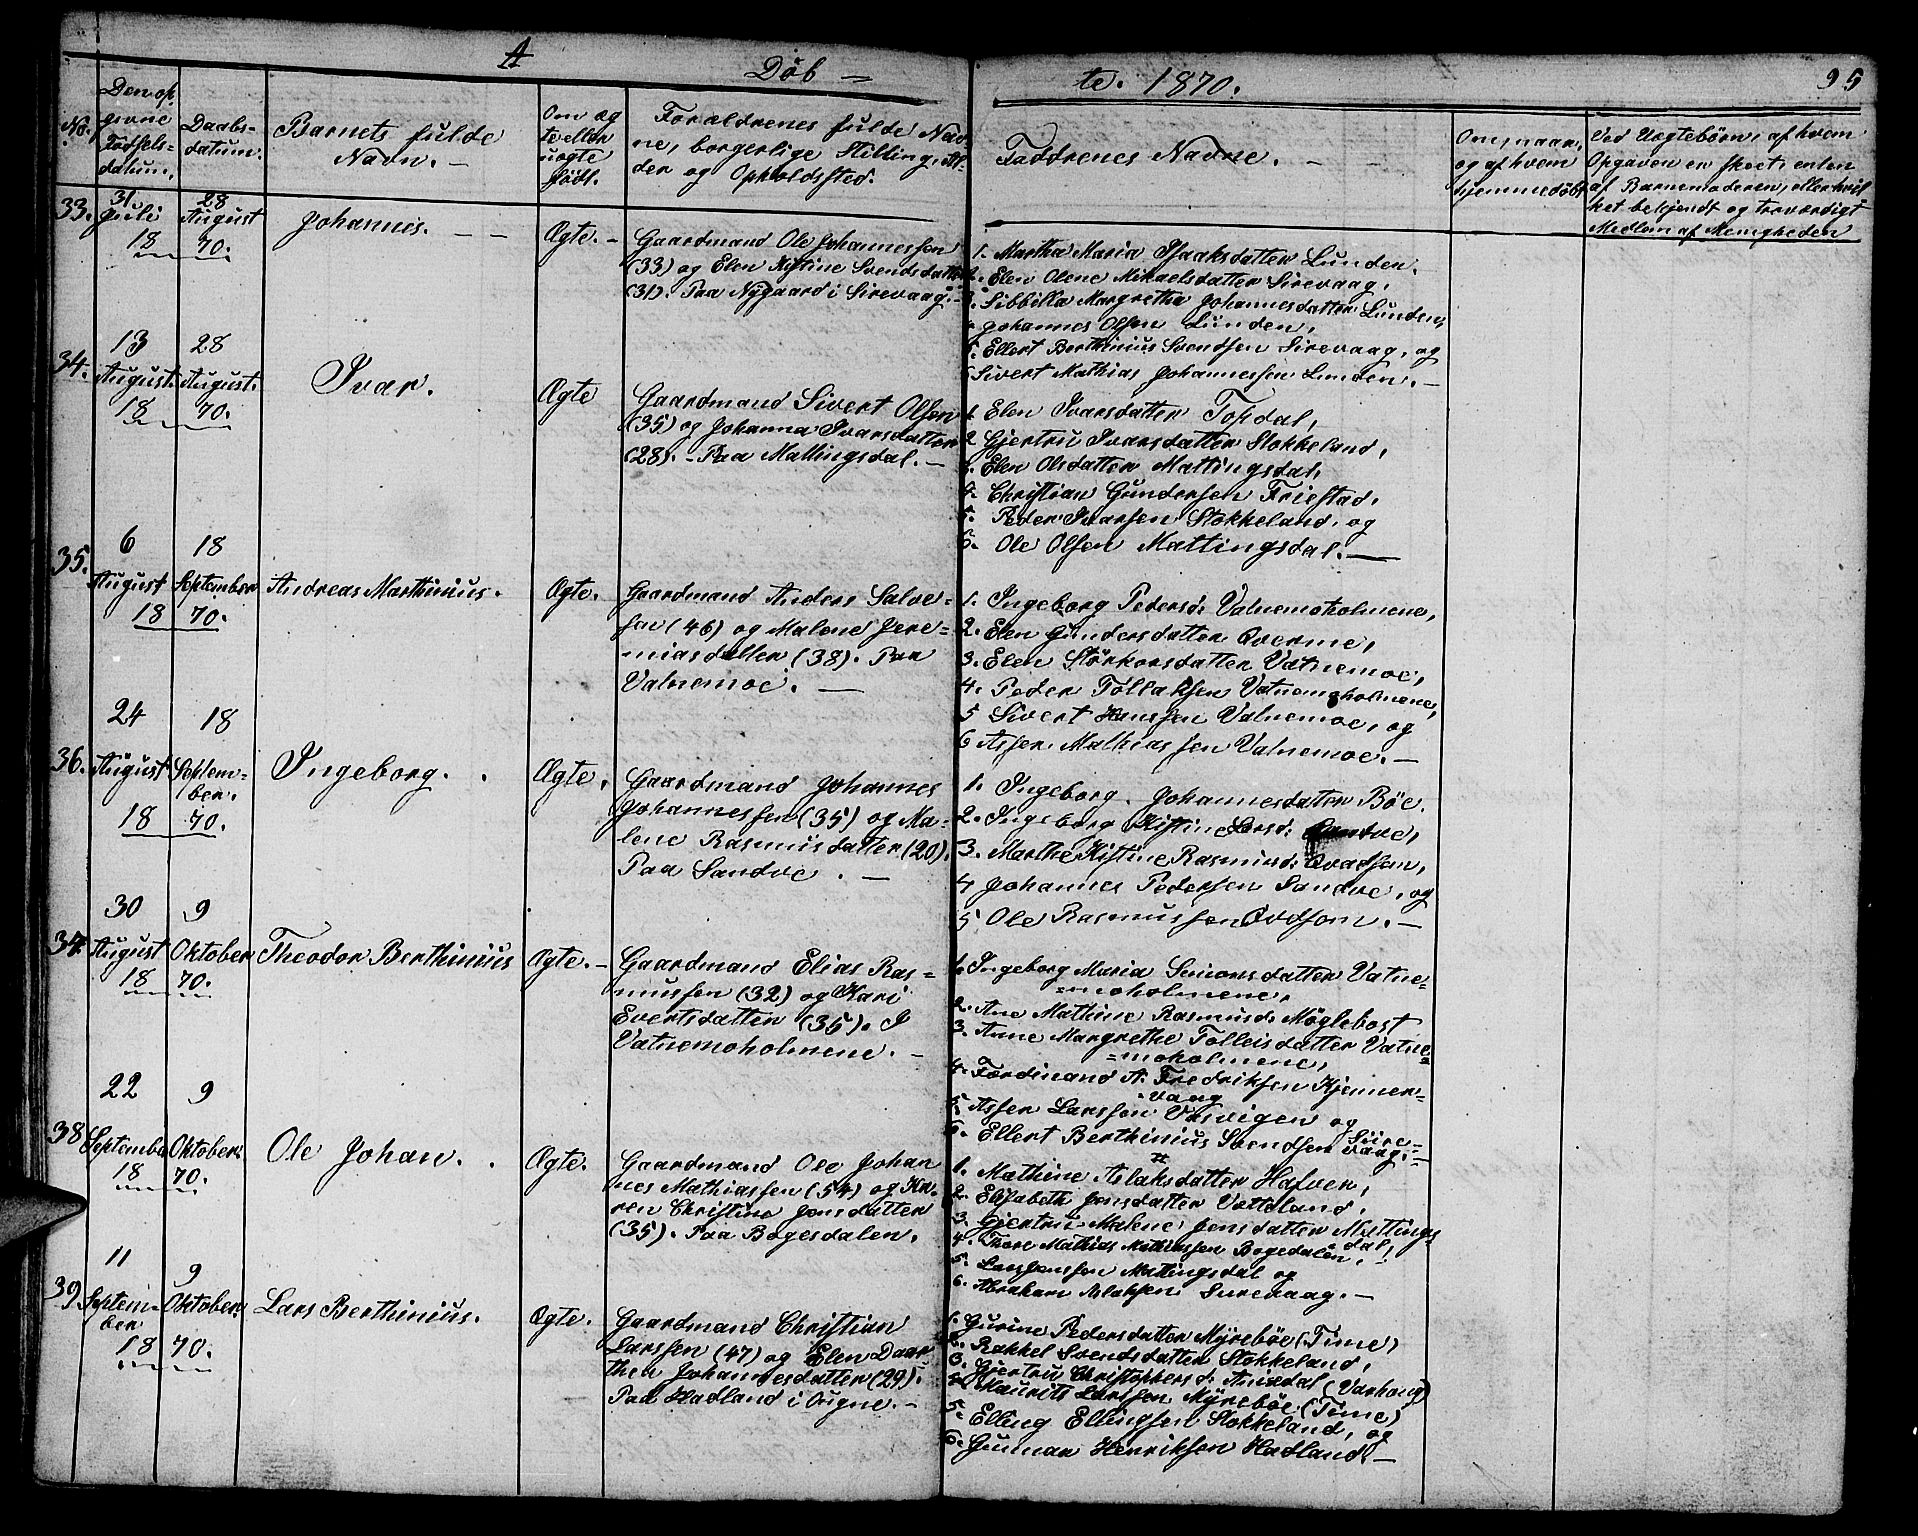 A
Døb - te. 1870.
95
No.
Den op
givne
Fødsels-
datum.
Daabs-
datum.
Barnets fulde
Navn. -
Om æg
te eller
uægte
født.
Forældrenes fulde Nav-
ne, borgerlige Stilling, Al-
der og Opholdssted.
Faddrenes Navne. - -
Om, naar,
og af hvem
hjemmedøbt
Ved Uægtebørn, af hvem
Opgaven er skeet, enten
af Barnemoderen, eller hvil
ket bekjendt og troværdigt
Medlem af Menigheden
33.
31
Juli
28
August
18 70.
Johannes. - -
Ægte. -
Gaardmand Ole Johannessen
(33) og Elen Kistine Svendsdatter
(31). Paa Nygaard i Sirevaag. -
1. Martha Maria Isaaksdatter Lunden.
2. Elen Olene Mikaelsdatter Sirevaag,
3. Sibbilla Margretha Johannesdatter Lunden,
4 Johannes Olsen Lunden,
5. Ellert Berthinius Svendsen Sirevaag, og
6 Sivert Mathias Johannessen Lunden. -
34.
13
August.
28
August.
18 70.
Ivar.
Ægte
Gaardmand Sivert Olsen
(35) og Johanna Ivarsdatter
(28). - Paa Mattingsdal. -
1. Elen Ivarsdatter Topdal,
2 Gjertru Ivarsdatter Stokkeland,
3. Elen Olsdatter Mattingsdal,
4. Christian Gundersen Friestad,
5. Peder Ivarsen Stokkeland, og
6. Ole Olsen Mattingsdal. -
35.
6
August
18
September
18 70.
Andreas Marthinius.
Ægte.
Gaardmand Anders Salve-
sen (46) og Malene Jere-
miasdatter (38). Paa
Vatnemoe. -
1. Ingeborg Pedersd: Vatnemoholmene,
2. Elen Gundersdatter Qverme,
3. Elen Størkorsdatter Vatnemoe,
4. Peder Tollaksen Vatnemoholmene,
5 Sivert Hanssen Vatnemoe, og
6 Asser Mathiassen Vatnemoe. -
36.
24
August
18
Septem-
ber.
18 70.
Ingeborg.
Ægte.
Gaardmand Johannes
Johannessen (35) og Ma-
lene Rasmusdatter (20).
Paa Sandve. -
1. Ingeborg Johannesdatter Bøe.
2. Ingeborg Kistine Larsd:
3. Marthe Kistine Rasmusd: Qvadsem,
4 Johannes Pedersen Sandve, og
5 Ole Rasmussen -
37.
30
August
9
Oktober
18 70.
Theodor Berthinius
Ægte. -
Gaardmand Elias Ras-
mussen (32) og Kari
Evertsdatter (35). I
Vatnemoholmene. -
1. Ingeborg Maria Simonsdatter Vatne-
=moholmene,
2. Ane Mathine Rasmusd: Møglebost
3. Anne Margrethe Tolleisdatter Vatne
=moholmene,
4. Ferdinand A. Fredriksen Kjenner-
vang
5. Asser Larssen Vasvigen og
6. Ellert Berthinius Svendsen Sire-
vaag. -
38
22
September
9
Oktober.
18 70.
Ole Johan.
Ægte.
Gaardmand Ole Johan
nes Mathiassen (54) og Ka-
ren Christine Jonsdatter
(35). Paa Bogesdalen.
1. Mathine Aslaksdatter Halver,
2. Elisabeth Jonsdatter Vatteland,
3. Gjertru Malene Jonsdatter Mattings
dal,
4. Thore Mathias Mathiassen Bogedalen,
5. Lars Jonssen Mattingsdal og
6. Abraham Aslaksen Surevaag. -
39
11
Septem-
ber
9
Oktober.
18 70.
Lars Berthinius.
Ægte.
Gaardmand Christian
Larssen (47) og Elen Daar
thea Johannesdatter (29).
Paa Hadland i Ougne. -
1. Gurine Pedersdatter Myrebøe (Time)
2. Rakkel Svendsdatter Stokkeland,
3. Gjertru Christophersd: Anisdal (Varhoug)
4 Maurits Larssen Myrebøe (Time)
5. Elling Ellingsen Stokkeland, og
6. Gunnar Henriksen Hadland. -